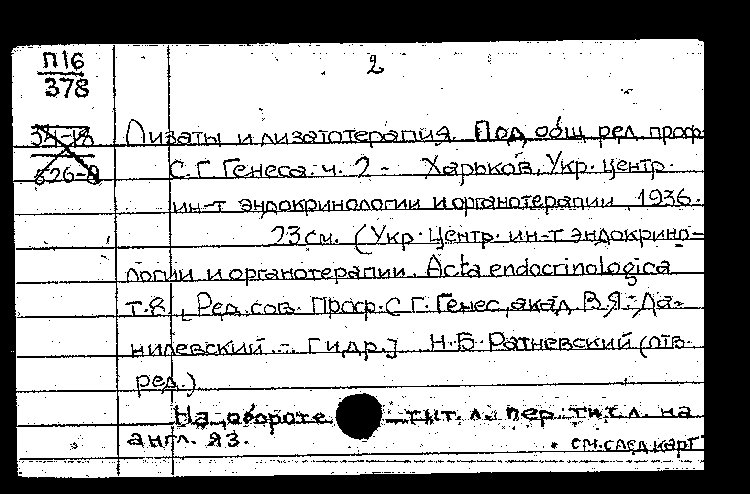 П16
378
2
Лизаты и лизатотерапия. Под общ ред. проф.
С.Г. Генеса. ч. 2 - Харьков, Укр. центр.
ин-т эндокринологии и органотерапии, 1936.
23 см. (Укр. Центр. ин-т эндокрино-
логии и органотерапии. Acta endocrinologica
т.8. [Ред. сов. Проф. С.Г. Генес, акад. В.Я. Да-
нилевский - и др.] Н.Б. Ратневский (отв.
ред.)
На обороте тит. л. пер. тит. л. на
англ. яз.
см. след карт